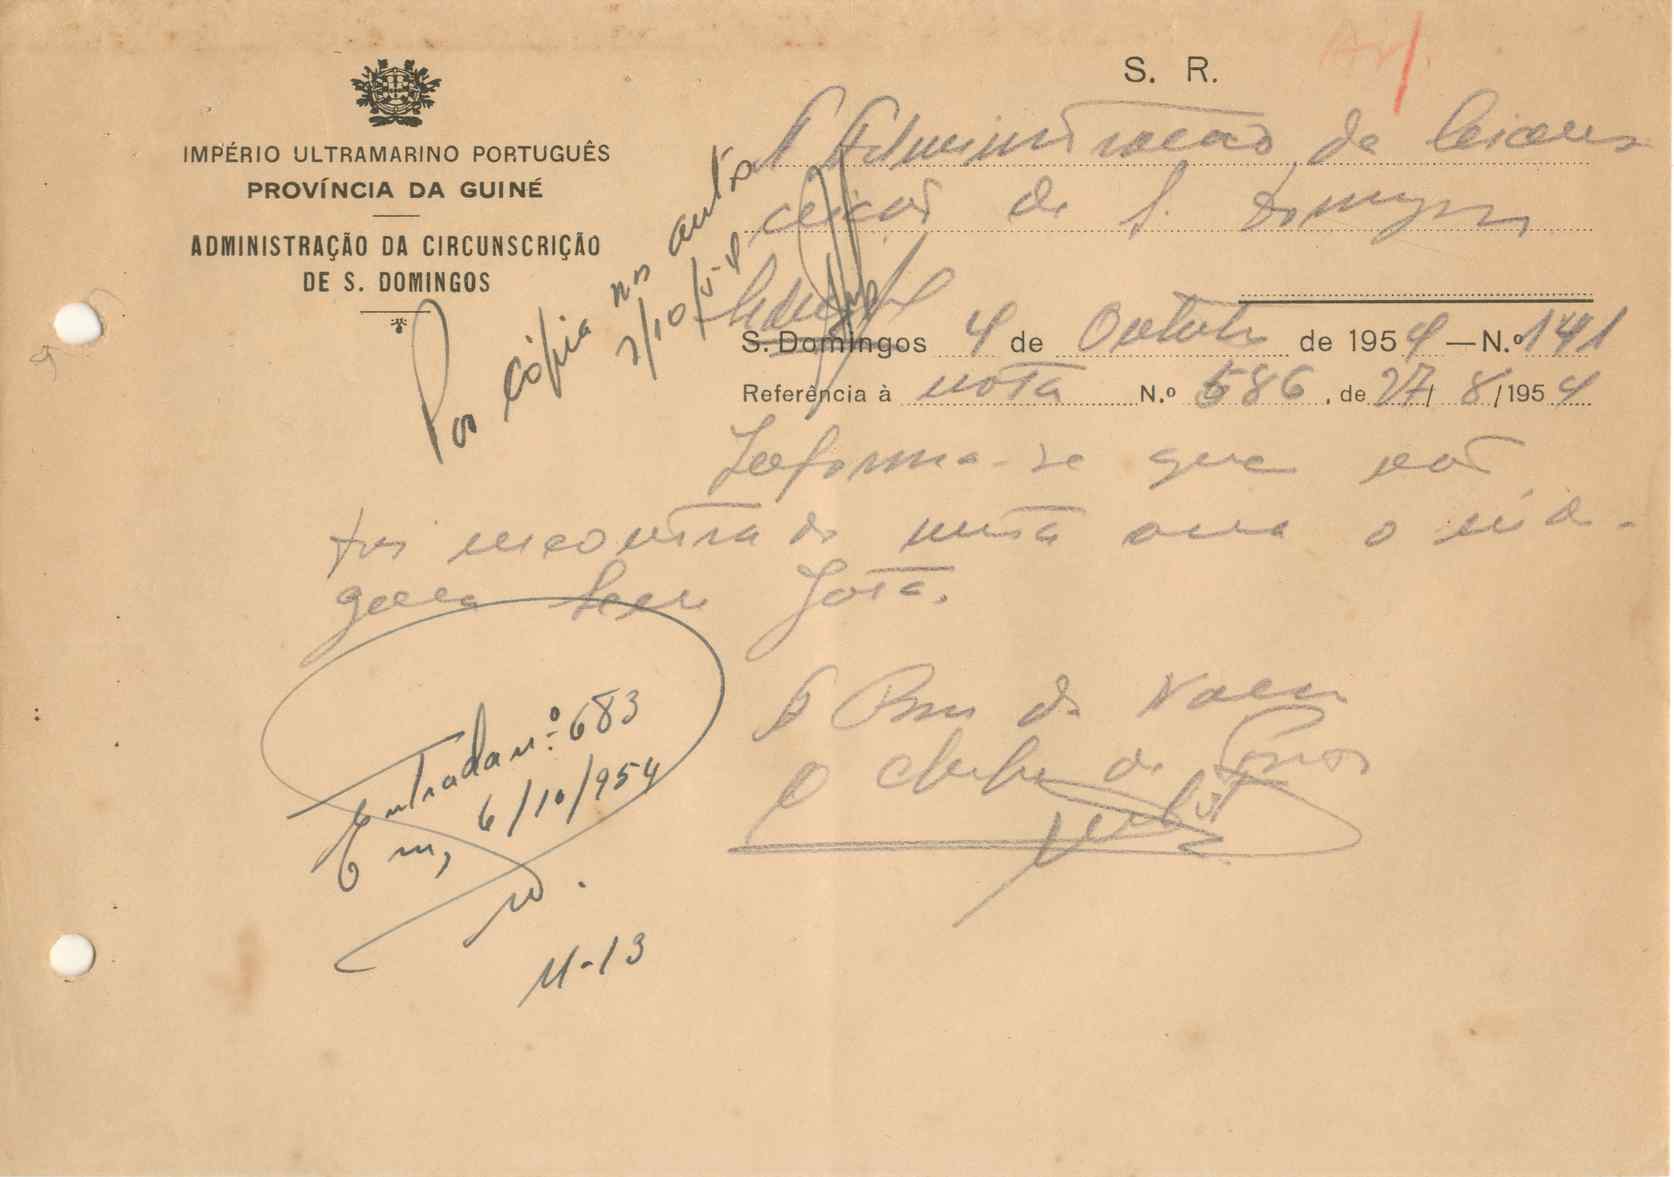 S. R.
IMPÉRIO ULTRAMARINO PORTUGUÊS
PROVÍNCIA DA GUINÉ
ADMINISTRAÇÃO DA CIRCUNSCRIÇÃO
DE S. DOMINGOS
À Administração da Circuns
crição de S. Domingos
S. Domingos 4 de Outubro de 1954 — N.º 141
Referência à nota N.º 586, de 27/8/1954
Por cópia nos autos
Informa-se que não
foi encontrado nesta area o indi-
gena Jota.
A Bem da Nação
O Chefe de Posto
Entrada n.º 683
Em, 6/10/954
M-13